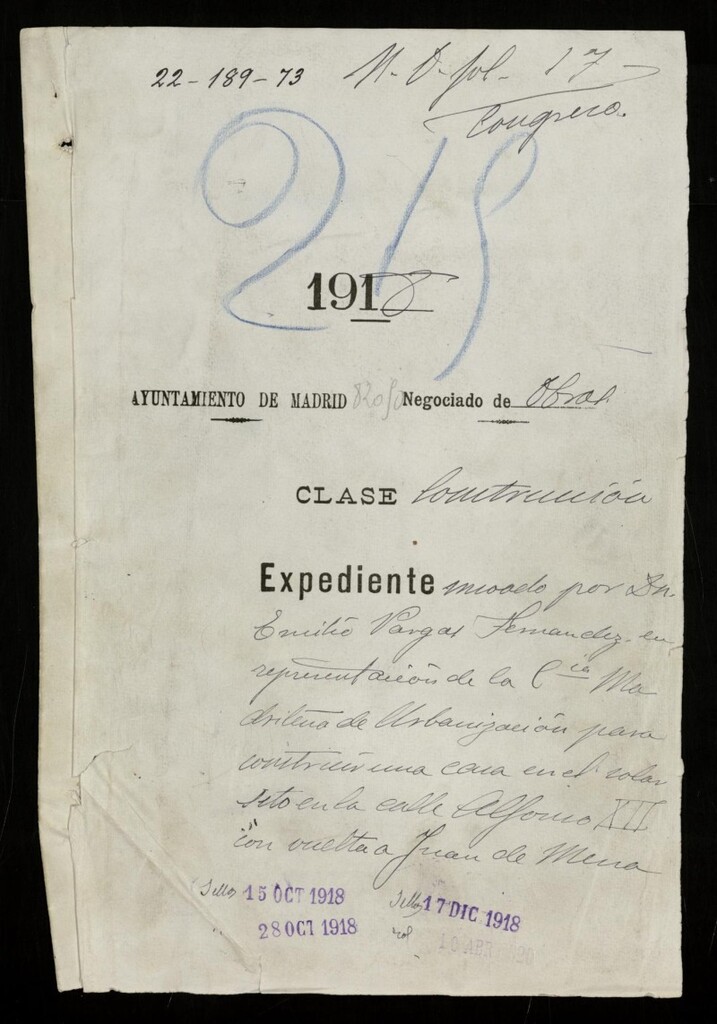 22-189-73 N. D. fol. 17
Congreso.
215
1918
AYUNTAMIENTO DE MADRID Negociado de Obras
CLASE Construcción
Expediente incoado por Dn.
Emilio Vargas Fernandez en
representación de la Cia Ma
drileña de Urbanización para
construir una casa en el solar
sito en la calle Alfonso XII
con vuelta a Juan de Mena
Sellos 15 OCT 1918 Sellos 17 DIC 1918
28 OCT 1918 10 ABR